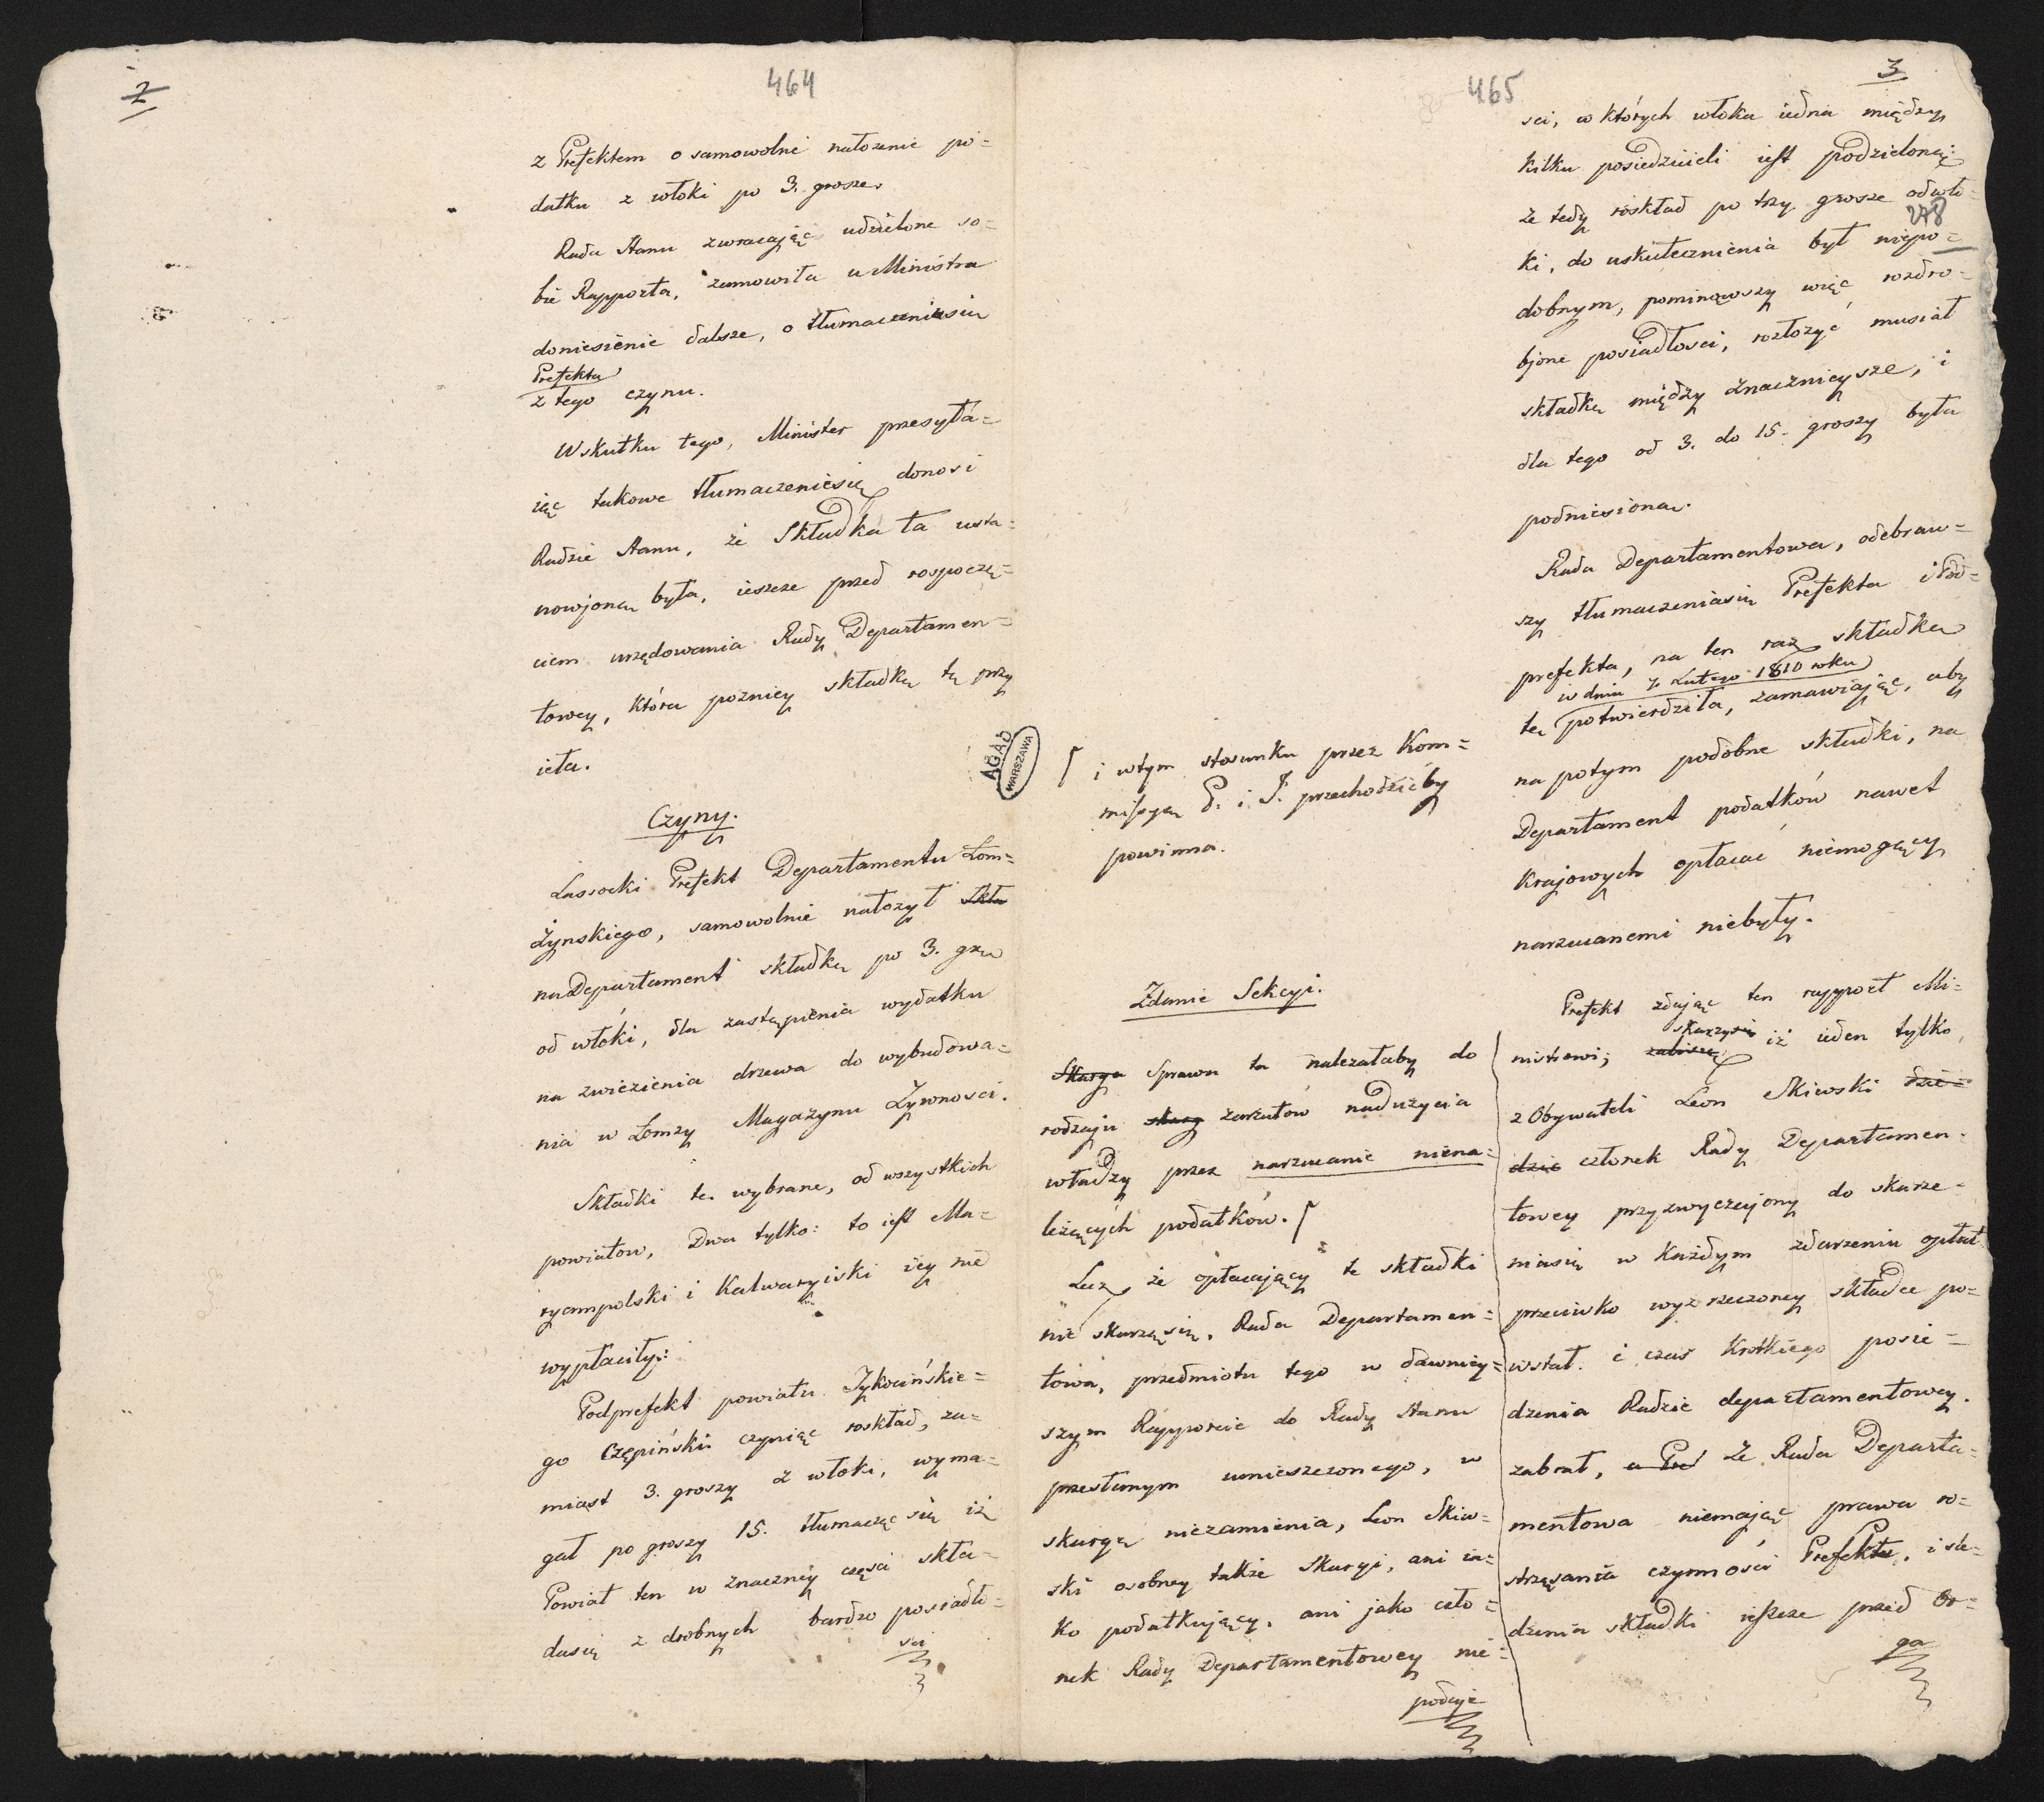 2
464
z Prefektem o samowolne nałożenie po=
datku z włoki po 3. grosze.
Rada Stanu zwracając udzielone so=
bie Rapporta, zamowiła u Ministra
doniesienie dalsze, o tłumaczeniusię
Prefekta
z tego czynu.
Wskutku tego, Minister przesyła=
iąc takowe tłumaczeniesię donosi
Radzie Stanu, że Składka ta usta=
nowjona była, ieszcze przed rospoczę=
ciem urzędowania Rady Departamen=
towey, która pozniey składkę tę przy
ięła.
Czyny.
Lassocki Prefekt Departamentu Łom=
żynskiego, samowolnie nałożył skła
na Departament składkę po 3. grz
od włóki, dla zastąpienia wydatku
na zwiezienia drzewa do wybudowa=
nia w Łomzy Magazynu Żywnosci.
Składki te wybrane, od wszystkich
powiatow, Dwa tylko: to iest Ma=
ryampolski i Kalwaryiski iey nie
wypłaciły:
Podprefekt powiatu Tykocińskie=
go Czępiński czyniąc roskład, za=
miast 3. groszy z włoki, wyma=
gał po groszy 15. tłumacząc się iż
Powiat ten w znaczney części skła=
dasię z drobnych bardzo posiadło=
sci
AGAD
WARSZAWA
3
465
sci, w których włoka iedna między
kilku posiedzicieli iest podzieloną;
że tedy roskład po trzy grosze od wło=
278
ki, do uskutecznienia był niepo=
dobnym, pominąwszy więc rozdro=
bjone posiadłosci, rozłożyć musiał
składkę między znacznieysze, i
dla tego od 3. do 15. groszy była
podniesiona.
Rada Departamentowa, odebraw=
szy tłumaczeniasię Prefekta i Pod=
prefekta, na ten raz składkę
w dniu 7. Lutego 1810 roku
tę potwierdziła, zamawiając, aby
na potym podobne składki, na
Departament podatków nawet
krajowych opłacać niemogący
narzucanemi niebyły.
Prefekt zdając ten rapport Mi=
skarzysię
nistrowi; iż ieden tylko
z Obywateli Leon Skiwski dzie=
dzic członek Rady Departamen=
towey przyzwyczajony do skarze=
niasię w każdym zdarzeniu opłat
przeciwko wyzrzeczoney składce po=
wstał. i czas krotkiego posie=
dzenia Radzie departamentowey.
zabrał, a Pref że Rada Departa=
mentowa niemając prawa ro=
strząsania czynności Prefekta, i są=
dzenia składki ieszcze przed Or=
ga
⌈ i wtym stosunku przez Kom=
missyę P. i I. przechodzićby
powinna.
Zdanie Sekcyi.
Skarga Sprawa ta należałaby do
rodzaju skarg zarzutów nadużycia
władzy przez narzucanie niena=
leżących podatków. ⌈
Lecz, że opłacający te składki
nie skarząsię, Rada Departamen=
towa, przedmiotu tego w dawniey=
szym Rapporcie do Rady Stanu
przesłanym umieszczonego, w
skargę niezamienia, Leon Skiw=
ski osobney także Skargi, ani ia=
ko podatkujący, ani jako czło=
nek Rady Departamentowey nie=
podaje